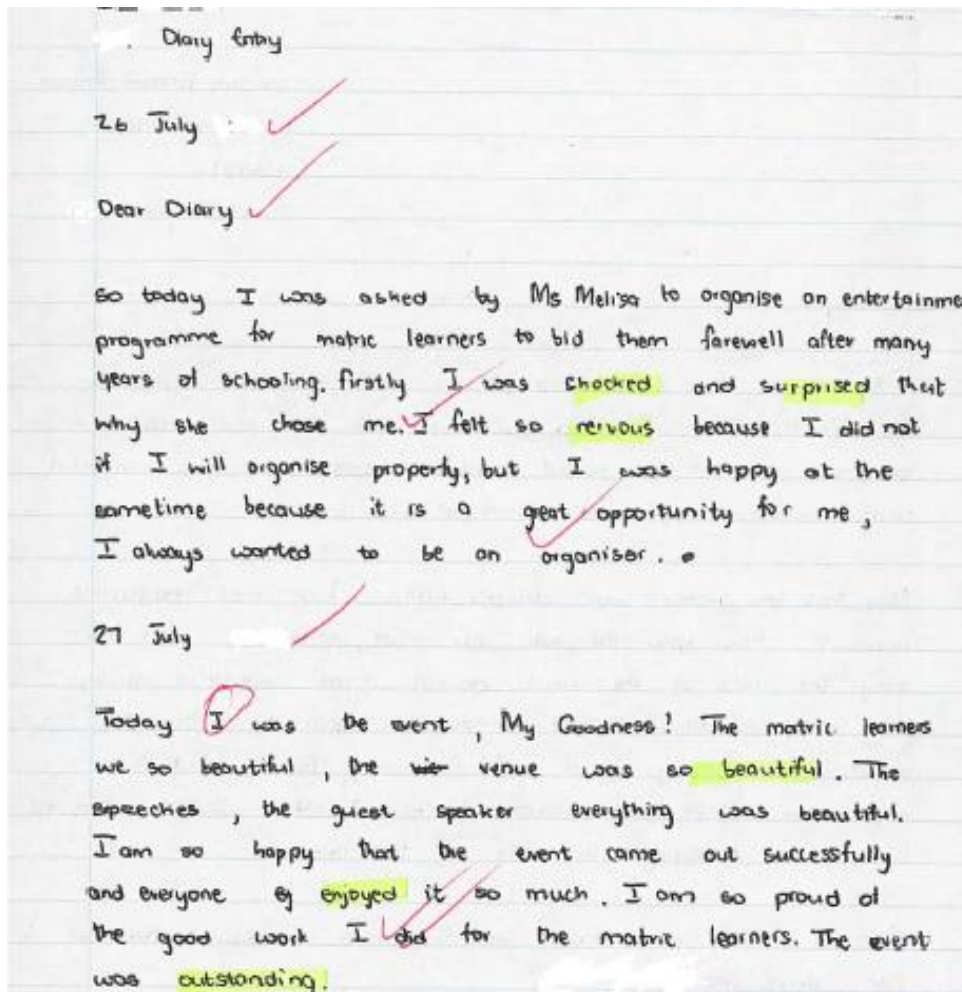 Diary Entry
26 July
Dear Diary
So today I was asked by Ms Melisa to organise an entertainme
programme for matric learners to bid them farewell after many
years of schooling. firstly I was shocked and surprised that
why she chose me. I felt so nervous because I did not
if I will organise properly, but I was happy at the
sametime because it is a great opportunity for me,
I always wanted to be an organiser.
27 July
Today I was the event, My Goodness! The matric learners
we so beautiful, the venue was so beautiful. The
speeches, the guest speaker everything was beautiful.
I am so happy that the event came out successfully
and everyone enjoyed it so much. I am so proud of
the good work I did for the matric learners. The event
was outstanding!